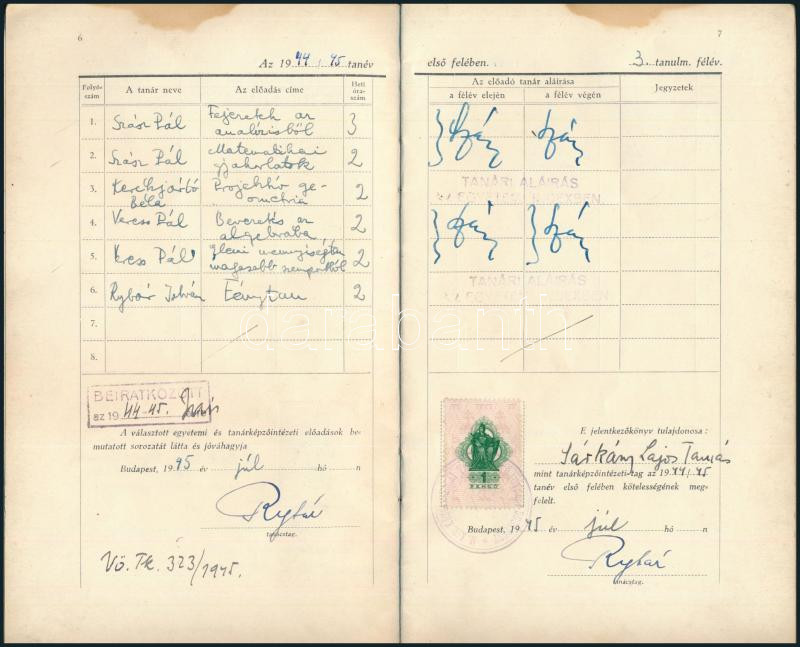 6
Az 1944/45 tanév
Folyószám
A tanár neve
Az előadás címe
Heti óraszám
1. Szász Pál Fejezetek az analízisből 3
2. Szász Pál Matematikai gyakorlatok 2
3. Kerékjártó Béla Projektív geometria 2
4. Veress Pál Bevezetés az algebrába 2
5. Veress Pál Elemi mennyiségtan magasabb szempontból 2
6. Rybár István Fénytan 2
7.
8.
BEIRATKOZOTT
az 1944-45.
A választott egyetemi és tanárképzőintézeti előadások bemutatott sorozatát látta és jóváhagyja
Budapest, 1945 év júl hó n
Rybár
tanácstag.
Vö. Tk. 323/1945.
7
első felében. 3. tanulm. félév.
Az előadó tanár aláírása
a félév elején
a félév végén
Jegyzetek
TANÁRI ALÁÍRÁS
AZ EGYETEMI INDEXBEN
TANÁRI ALÁÍRÁS
AZ EGYETEMI INDEXBEN
1
PENGŐ
E jelentkezőkönyv tulajdonosa:
Sárkány Lajos Tamás
mint tanárképzőintézeti tag az 1944/45
tanév első felében kötelességének megfelelt.
Budapest, 1945 év júl hó n
Rybár
tanácstag.
darabanth